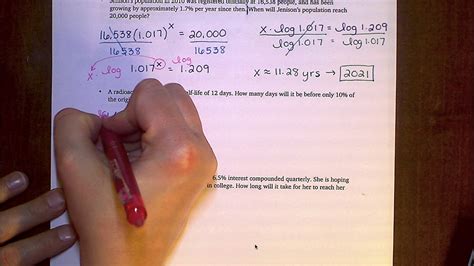 Jenison's population in 2010 was registered officially at 16,538 people, and has been
growing by approximately 1.7% per year since then. When will Jenison's population reach
20,000 people?
16,538(1.017)^x = 20,000
16,538 16,538
x · log 1.017^x = log 1.209
x · log 1.017 = log 1.209
log 1.017 log 1.017
x ≈ 11.28 yrs → 2021
• A radioac half-life of 12 days. How many days will it be before only 10% of
the orig
6.5% interest compounded quarterly. She is hoping
in college. How long will it take for her to reach her